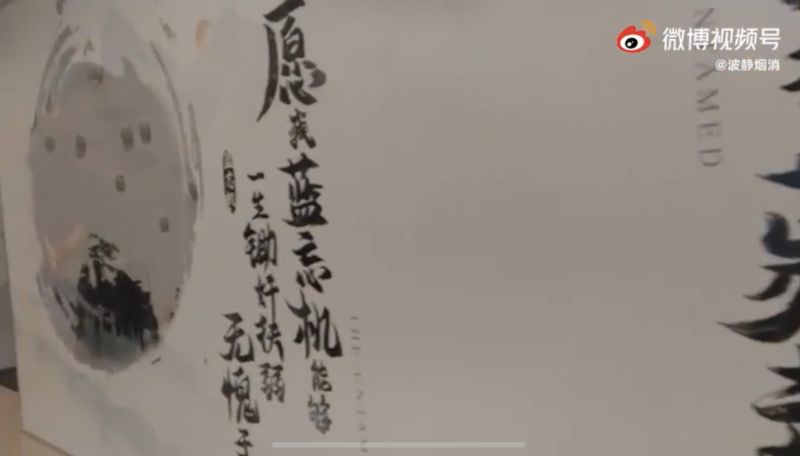 微博视频号
@波静烟消
AMED
THE UNTAM
愿我蓝忘机能够
一生锄奸扶弱
无愧于